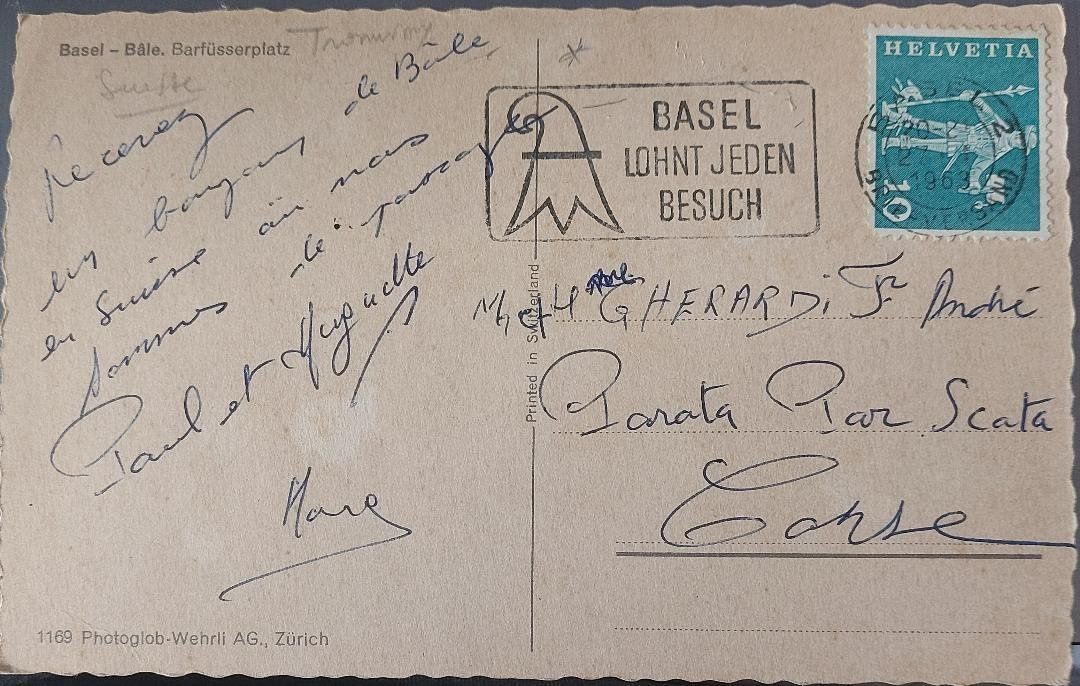 Basel – Bâle. Barfüsserplatz Tramway
Suisse
Recevez
les bonjours de Bâle
en Suisse où nous
sommes de passage
Paul et Huguette
Marc
1169 Photoglob-Wehrli AG., Zürich
Printed in Switzerland
BASEL
LOHNT JEDEN
BESUCH
HELVETIA
10
BASEL 2
1963
BRIEFVERSAND
GHERARDi F André
Parata Par Scata
Corse